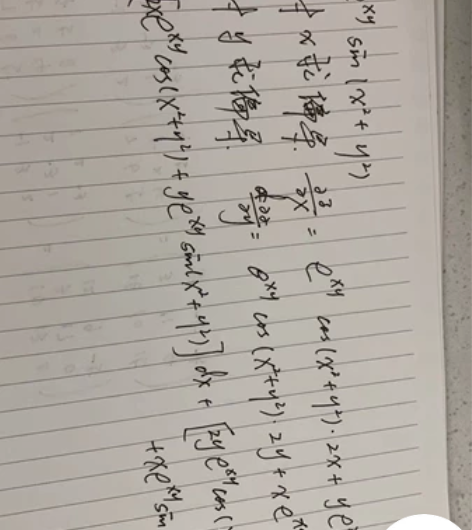 xy sin(x²+y²)
对 x 求偏导. ∂z/∂x = e^xy cos(x²+y²)·2x + ye
对 y 求偏导. ∂z/∂y = e^xy cos(x²+y²)·2y + xe^x
[2xe^xy cos(x²+y²) + ye^xy sin(x²+y²)] dx + [2ye^xy cos(
+xe^xy sin